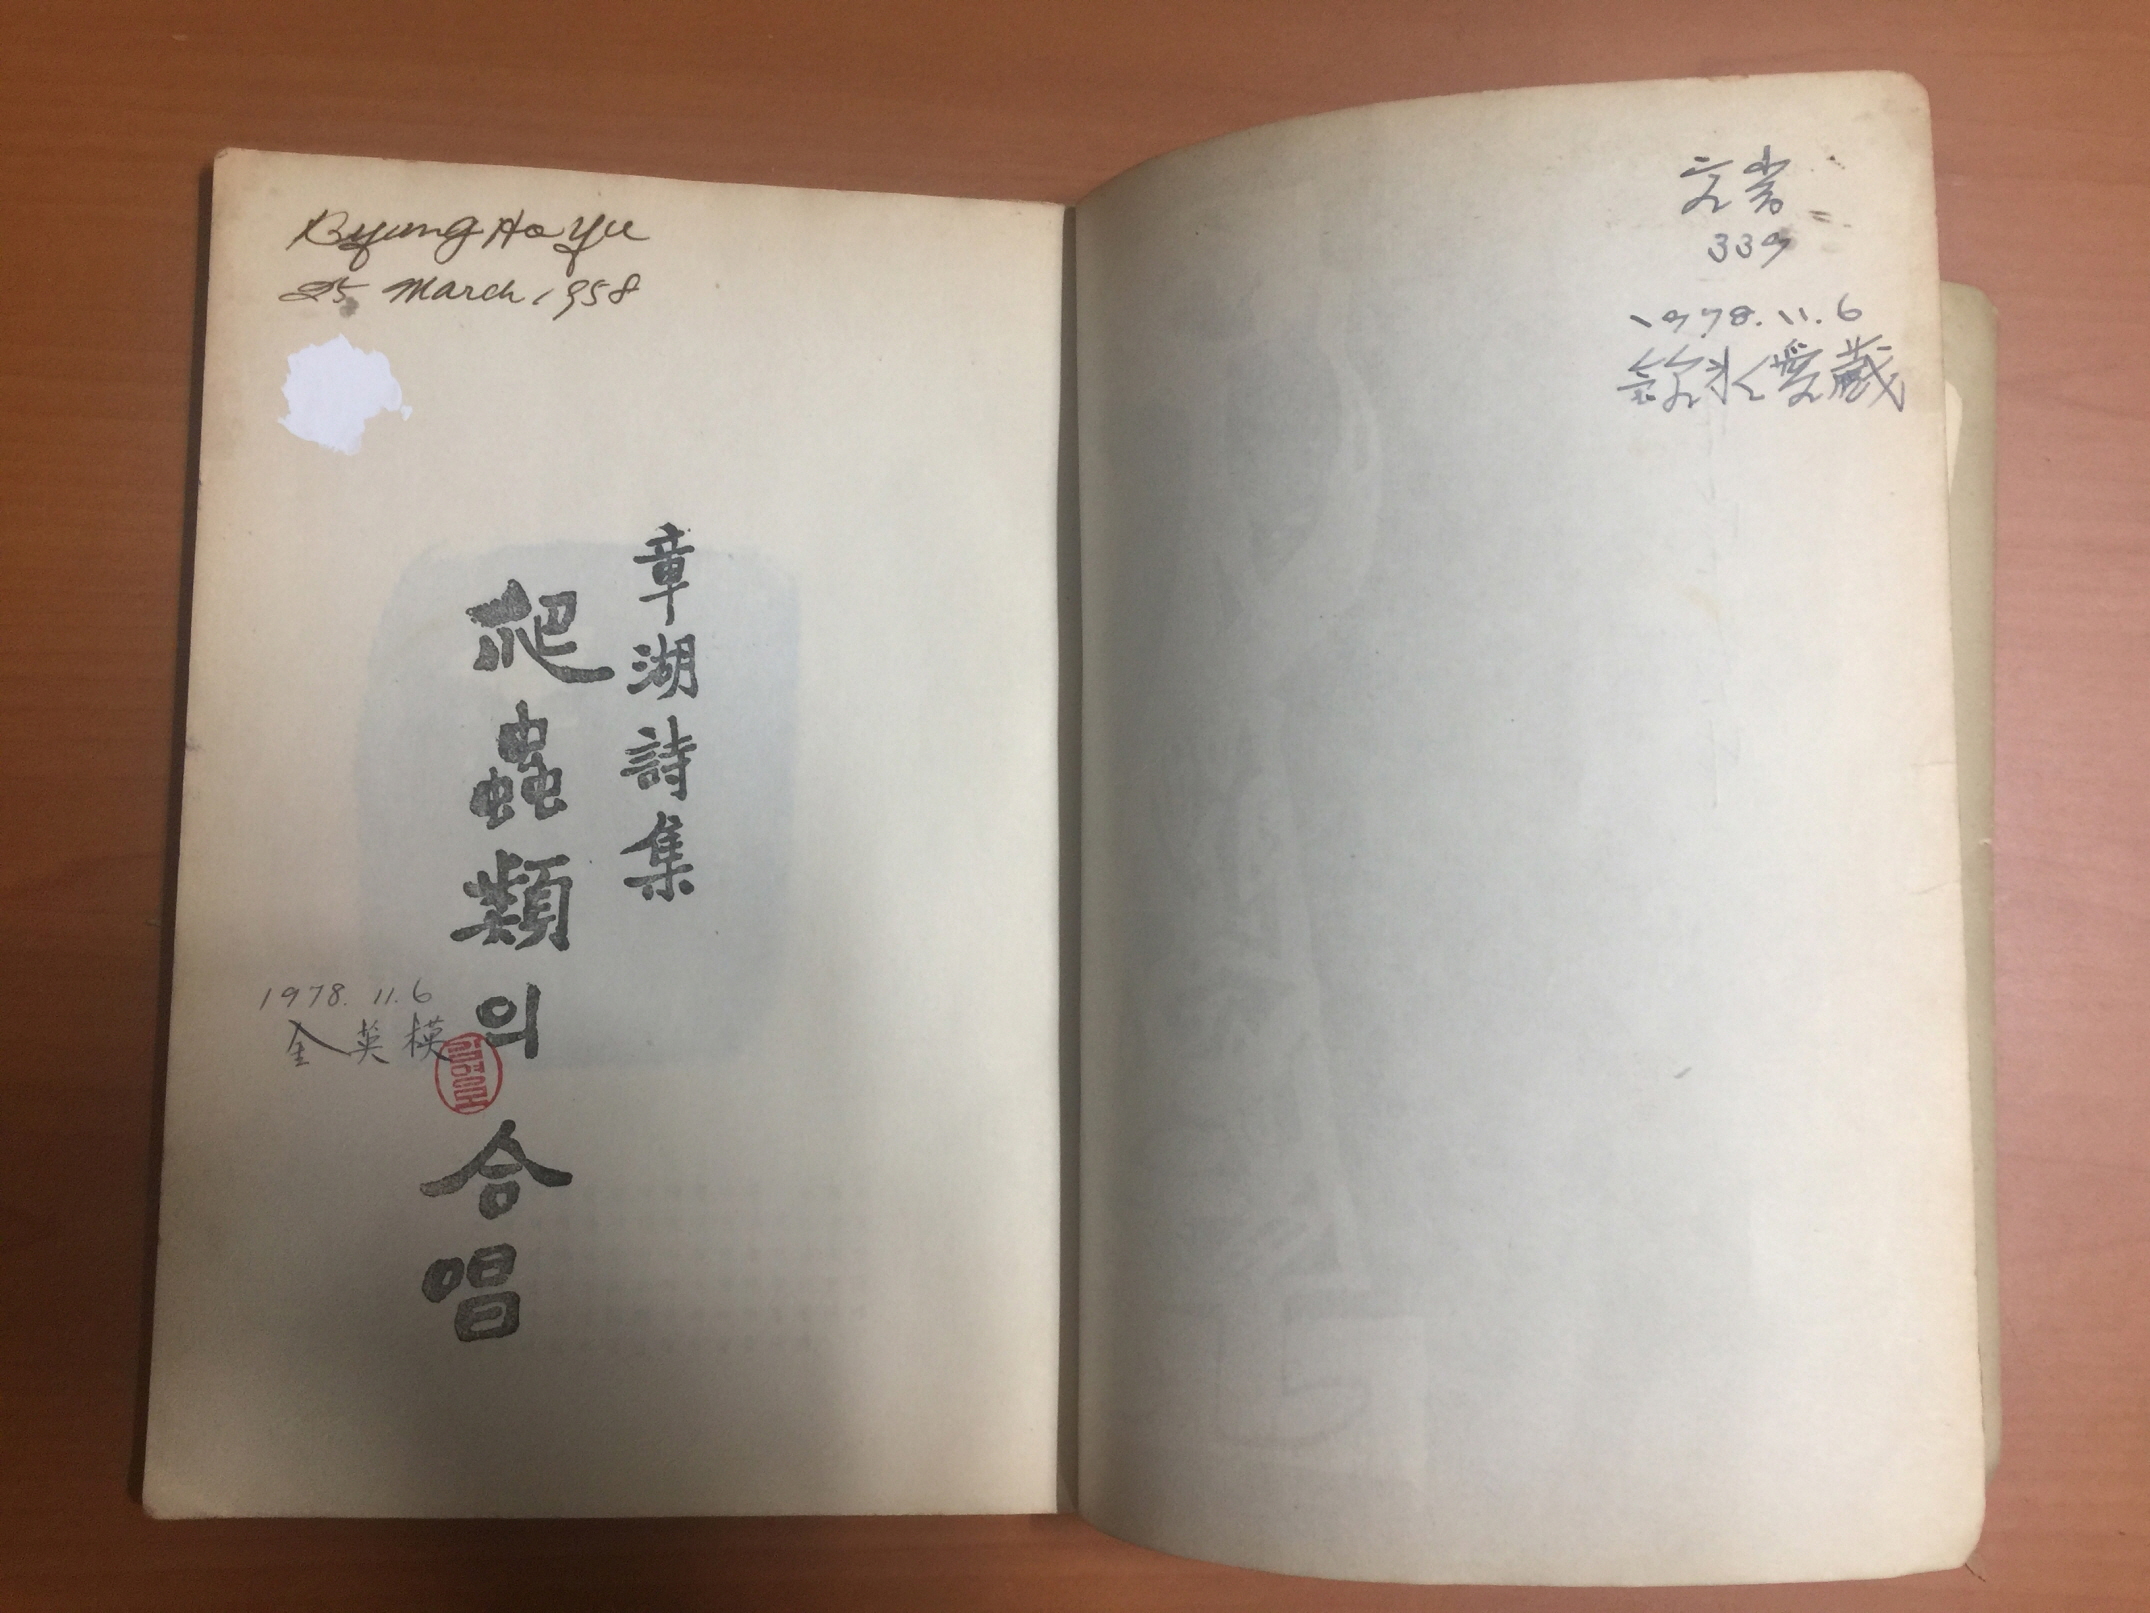 Byung Ho Yu
25 March, 1958
章湖詩集
爬蟲類의 合唱
1978. 11. 6
金英模
339
1978. 11. 6
愛藏